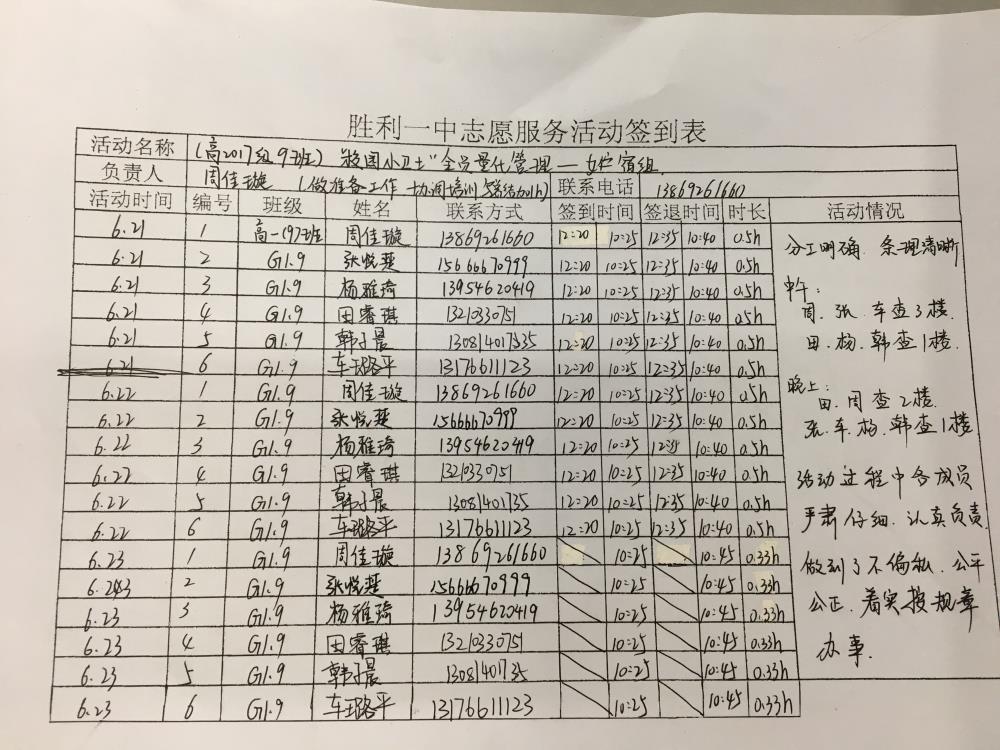 胜利一中志愿服务活动签到表
活动名称 (高2017级9班) 校园小卫士"全员量化管理—女控宿组
负责人 周佳璇 (做准备工作 协调培训 总结 1h) 联系电话 13869261660
活动时间 编号 班级 姓名 联系方式 签到时间 签退时间 时长 活动情况
6.21 1 高一(9)班 周佳璇 13869261660 12:20 10:25 12:35 10:40 0.5h
6.21 2 G1.9 张悦斐 15666670999 12:20 10:25 12:35 10:40 0.5h
6.21 3 G1.9 杨雅琦 13954620419 12:20 10:25 12:35 10:40 0.5h
6.21 4 G1.9 田睿琪 13210330751 12:20 10:25 12:35 10:40 0.5h
6.21 5 G1.9 韩子晨 13081401735 12:20 10:25 12:35 10:40 0.5h
6.21 6 G1.9 车璐平 13176611123 12:20 10:25 12:35 10:40 0.5h
6.22 1 G1.9 周佳璇 13869261660 12:20 10:25 12:35 10:40 0.5h
6.22 2 G1.9 张悦斐 15666670999 12:20 10:25 12:35 10:40 0.5h
6.22 3 G1.9 杨雅琦 13954620419 12:20 10:25 12:35 10:40 0.5h
6.22 4 G1.9 田睿琪 13210330751 12:20 10:25 12:35 10:40 0.5h
6.22 5 G1.9 韩子晨 13081401735 12:20 10:25 12:35 10:40 0.5h
6.22 6 G1.9 车璐平 13176611123 12:20 10:25 12:35 10:40 0.5h
6.23 1 G1.9 周佳璇 13869261660 10:25 10:45 0.33h
6.23 2 G1.9 张悦斐 15666670999 10:25 10:45 0.33h
6.23 3 G1.9 杨雅琦 13954620419 10:25 10:45 0.33h
6.23 4 G1.9 田睿琪 13210330751 10:25 10:45 0.33h
6.23 5 G1.9 韩子晨 13081401735 10:25 10:45 0.33h
6.23 6 G1.9 车璐平 13176611123 10:25 10:45 0.33h
分工明确、条理清晰
中午:
周、张、车查3楼.
田、杨、韩查1楼.
晚上:
田、周查2楼.
张、车、杨、韩查1楼
活动过程中各成员
严肃仔细、认真负责、
做到了不偏私、公平
公正、着实按规章
办事.